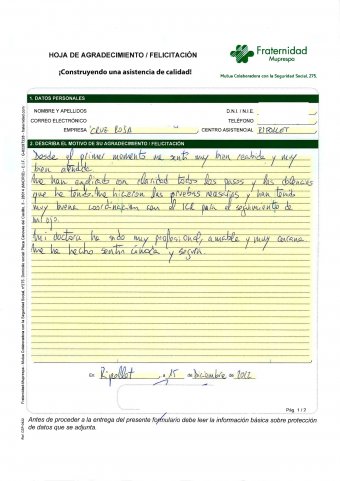 HOJA DE AGRADECIMIENTO / FELICITACIÓN
Fraternidad
Muprespa
¡Construyendo una asistencia de calidad!
Mutua Colaboradora con la Seguridad Social, 275.
1. DATOS PERSONALES
NOMBRE Y APELLIDOS
D.N.I. / N.I.E.
CORREO ELECTRÓNICO
TELÉFONO
EMPRESA CRUZ ROJA
CENTRO ASISTENCIAL RIPOLLET
2. DESCRIBA EL MOTIVO DE SU AGRADECIMIENTO / FELICITACIÓN
Desde el primer momento me sentí muy bien recibida y muy
bien atendida.
Me han explicado con claridad todos los pasos y las dolencias
que he tenido. Me hicieron las pruebas necesarias y han tenido
muy buena coordinación con el ICR para el seguimiento de
mi ojo.
Mi doctora ha sido muy profesional, amable y muy cercana
me ha hecho sentir cómoda y segura.
En Ripollet, a 15 de Diciembre de 2022
Pág. 1 / 2
Antes de proceder a la entrega del presente formulario debe leer la información básica sobre protección
de datos que se adjunta.